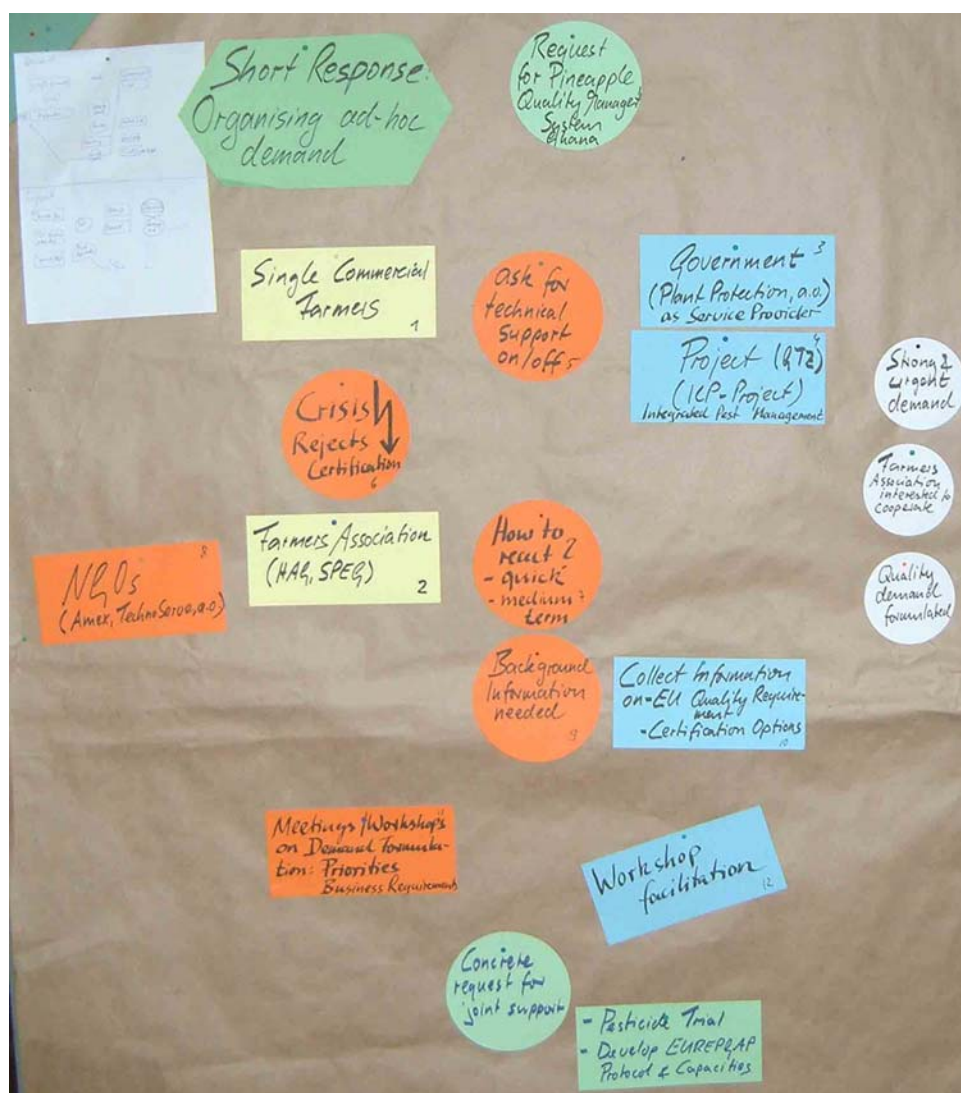 Short Response:
Organising ad-hoc
demand
Request
for Pineapple
Quality Managemt
System
Ghana
Single Commercial
Farmers
1
ask for
technical
support
on/off 5
Government 3
(Plant Protection, a.o.)
as Service Provider
Project (GTZ) 4
(ICP-Project)
Integrated Pest Management
Strong &
urgent
demand
Crisis
Rejects
Certification
6
Farmers
Association
interested to
cooperate
NGOs 8
(Amex, TechnoServe, a.o.)
Farmers Association
(HAG, SPEG)
2
How to
react?
- quick
- medium 7
term
Quality
demand
formulated
Background
Information
needed
9
Collect Information
on - EU Quality Require-
ment
- Certification Options
10
Meetings / Workshops 11
on Demand Formula-
tion: Priorities
Business Requirements
Workshop
facilitation
12
Concrete
request for
joint support
- Pesticide Trial
- Develop EUREPGAP
Protocol & Capacities